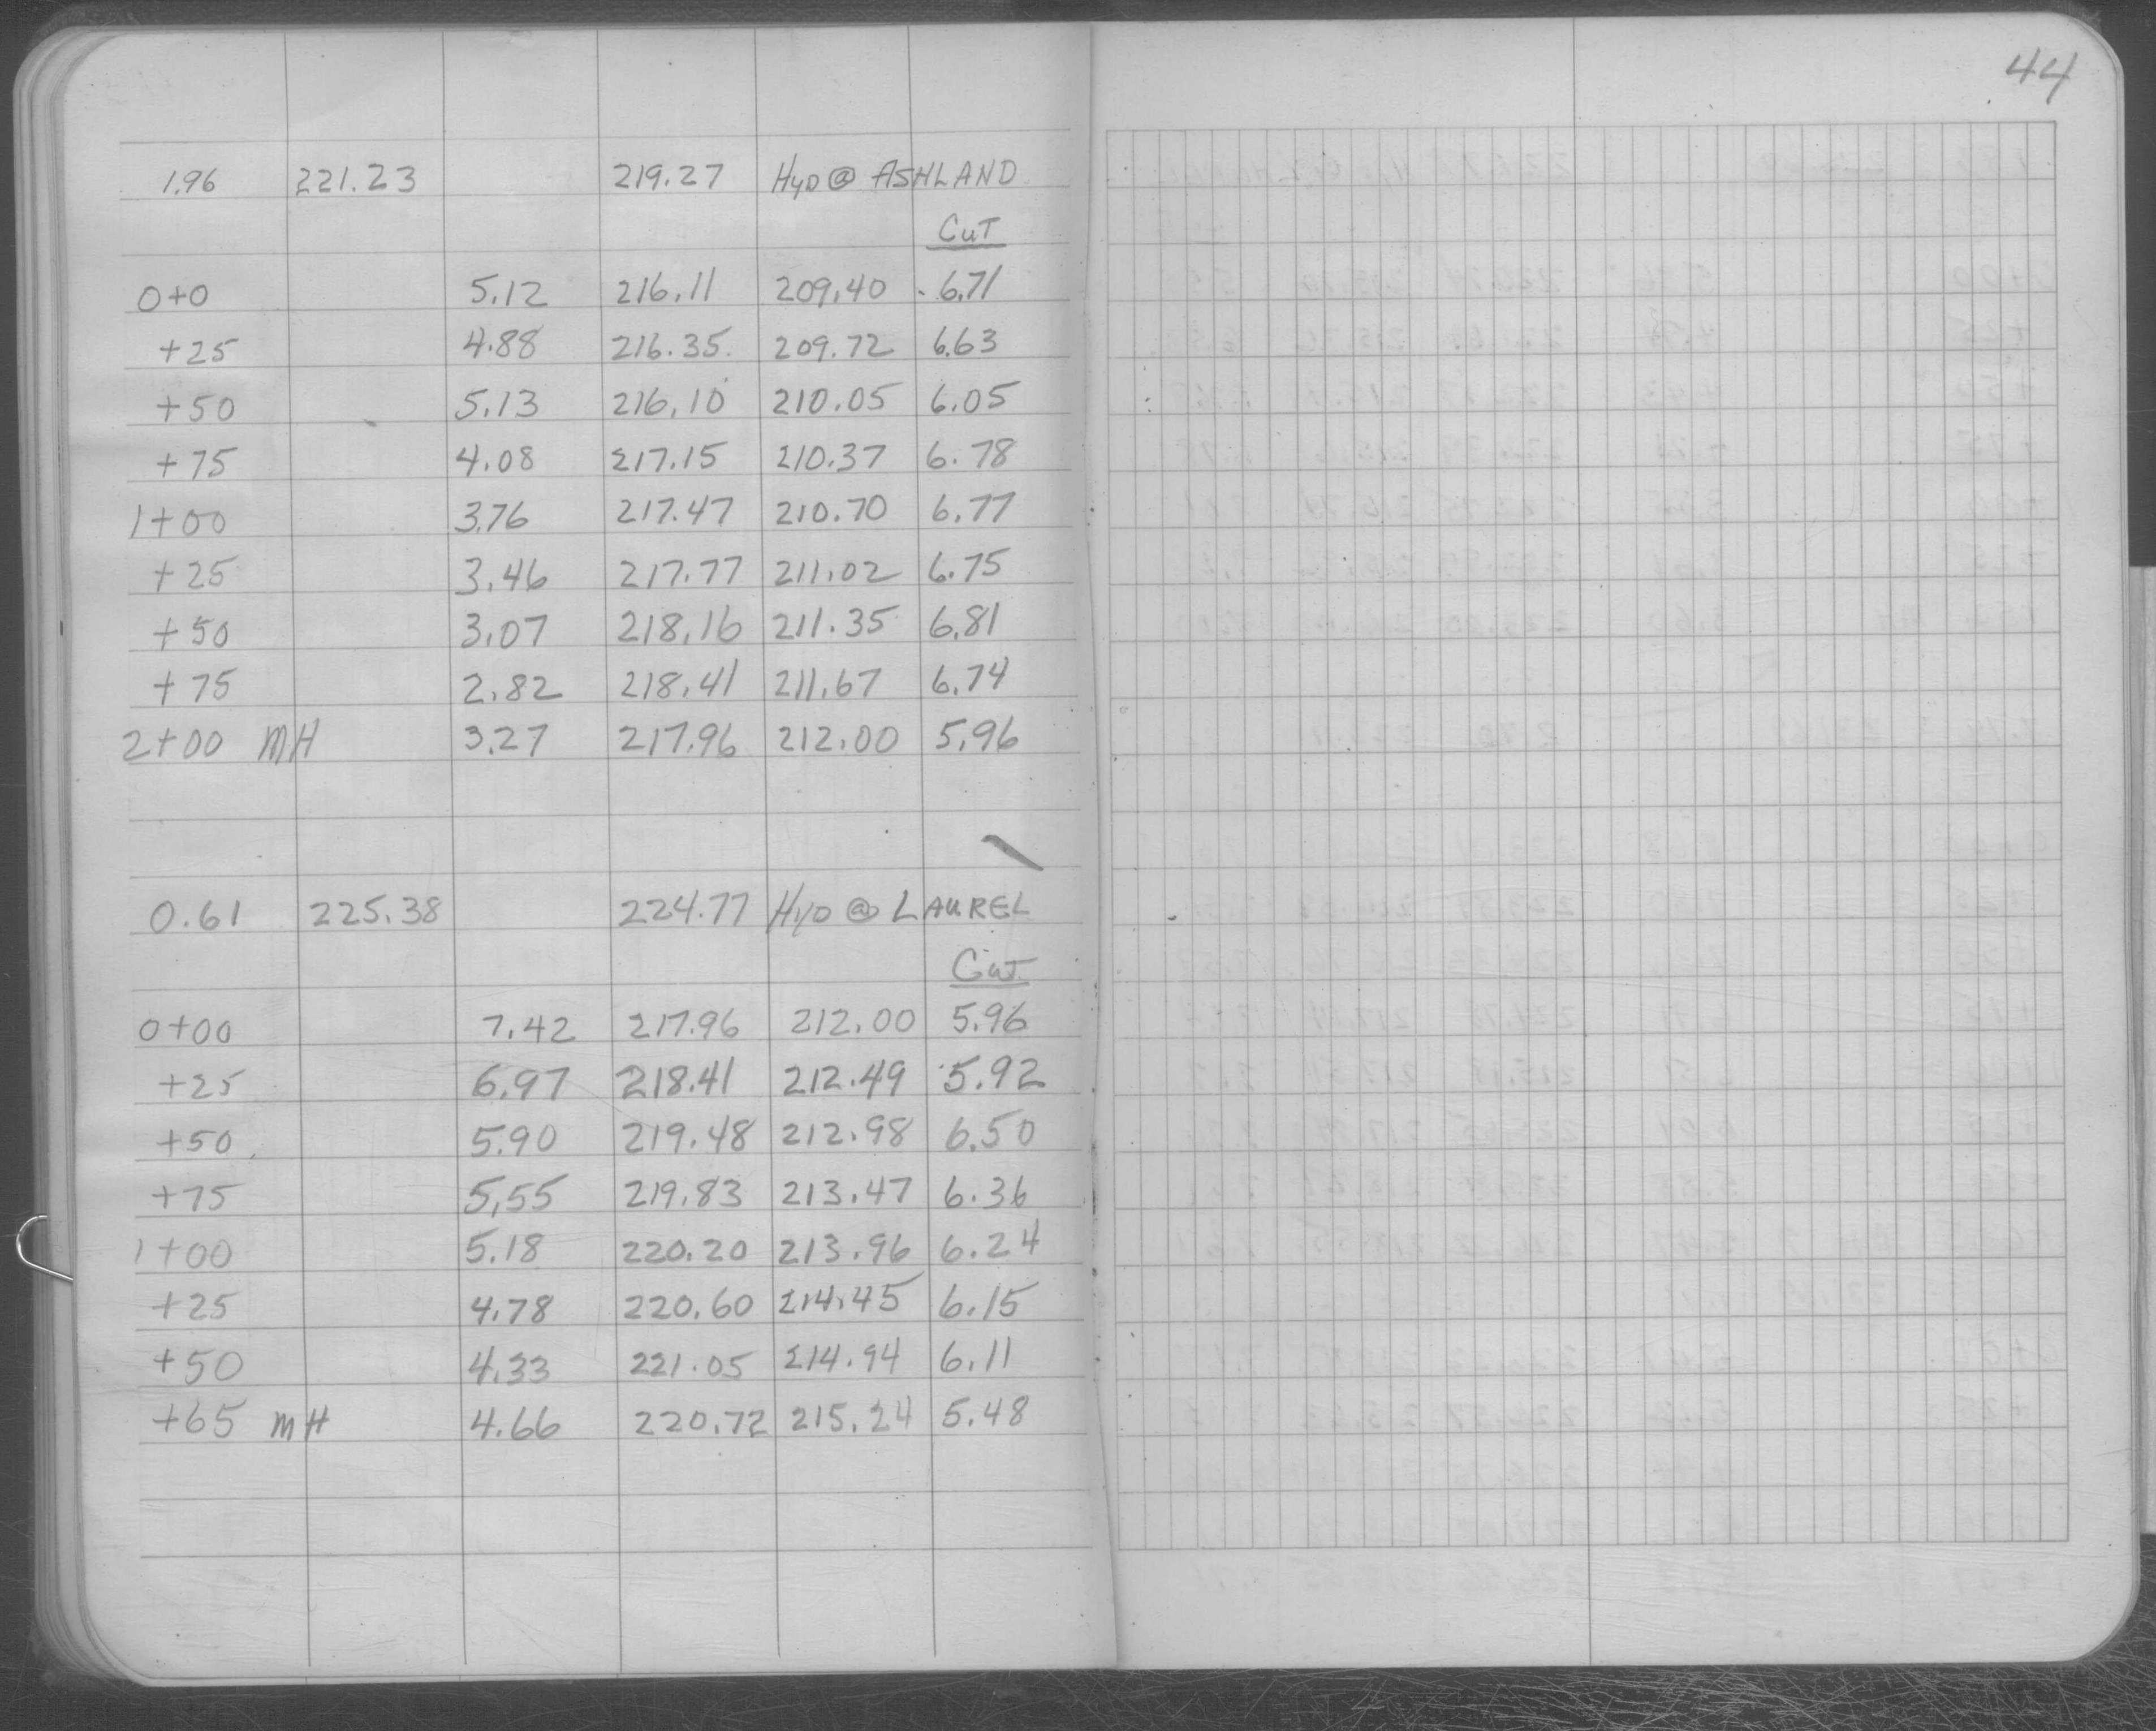 44
1.96 221.23 219.27 HYD @ ASHLAND
CUT
0+0 5.12 216.11 209.40 6.71
+25 4.88 216.35 209.72 6.63
+50 5.13 216.10 210.05 6.05
+75 4.08 217.15 210.37 6.78
1+00 3.76 217.47 210.70 6.77
+25 3.46 217.77 211.02 6.75
+50 3.07 218.16 211.35 6.81
+75 2.82 218.41 211.67 6.74
2+00 MH 3.27 217.96 212.00 5.96
0.61 225.38 224.77 HYD @ LAUREL
CUT
0+00 7.42 217.96 212.00 5.96
+25 6.97 218.41 212.49 5.92
+50 5.90 219.48 212.98 6.50
+75 5.55 219.83 213.47 6.36
1+00 5.18 220.20 213.96 6.24
+25 4.78 220.60 214.45 6.15
+50 4.33 221.05 214.94 6.11
+65 MH 4.66 220.72 215.24 5.48